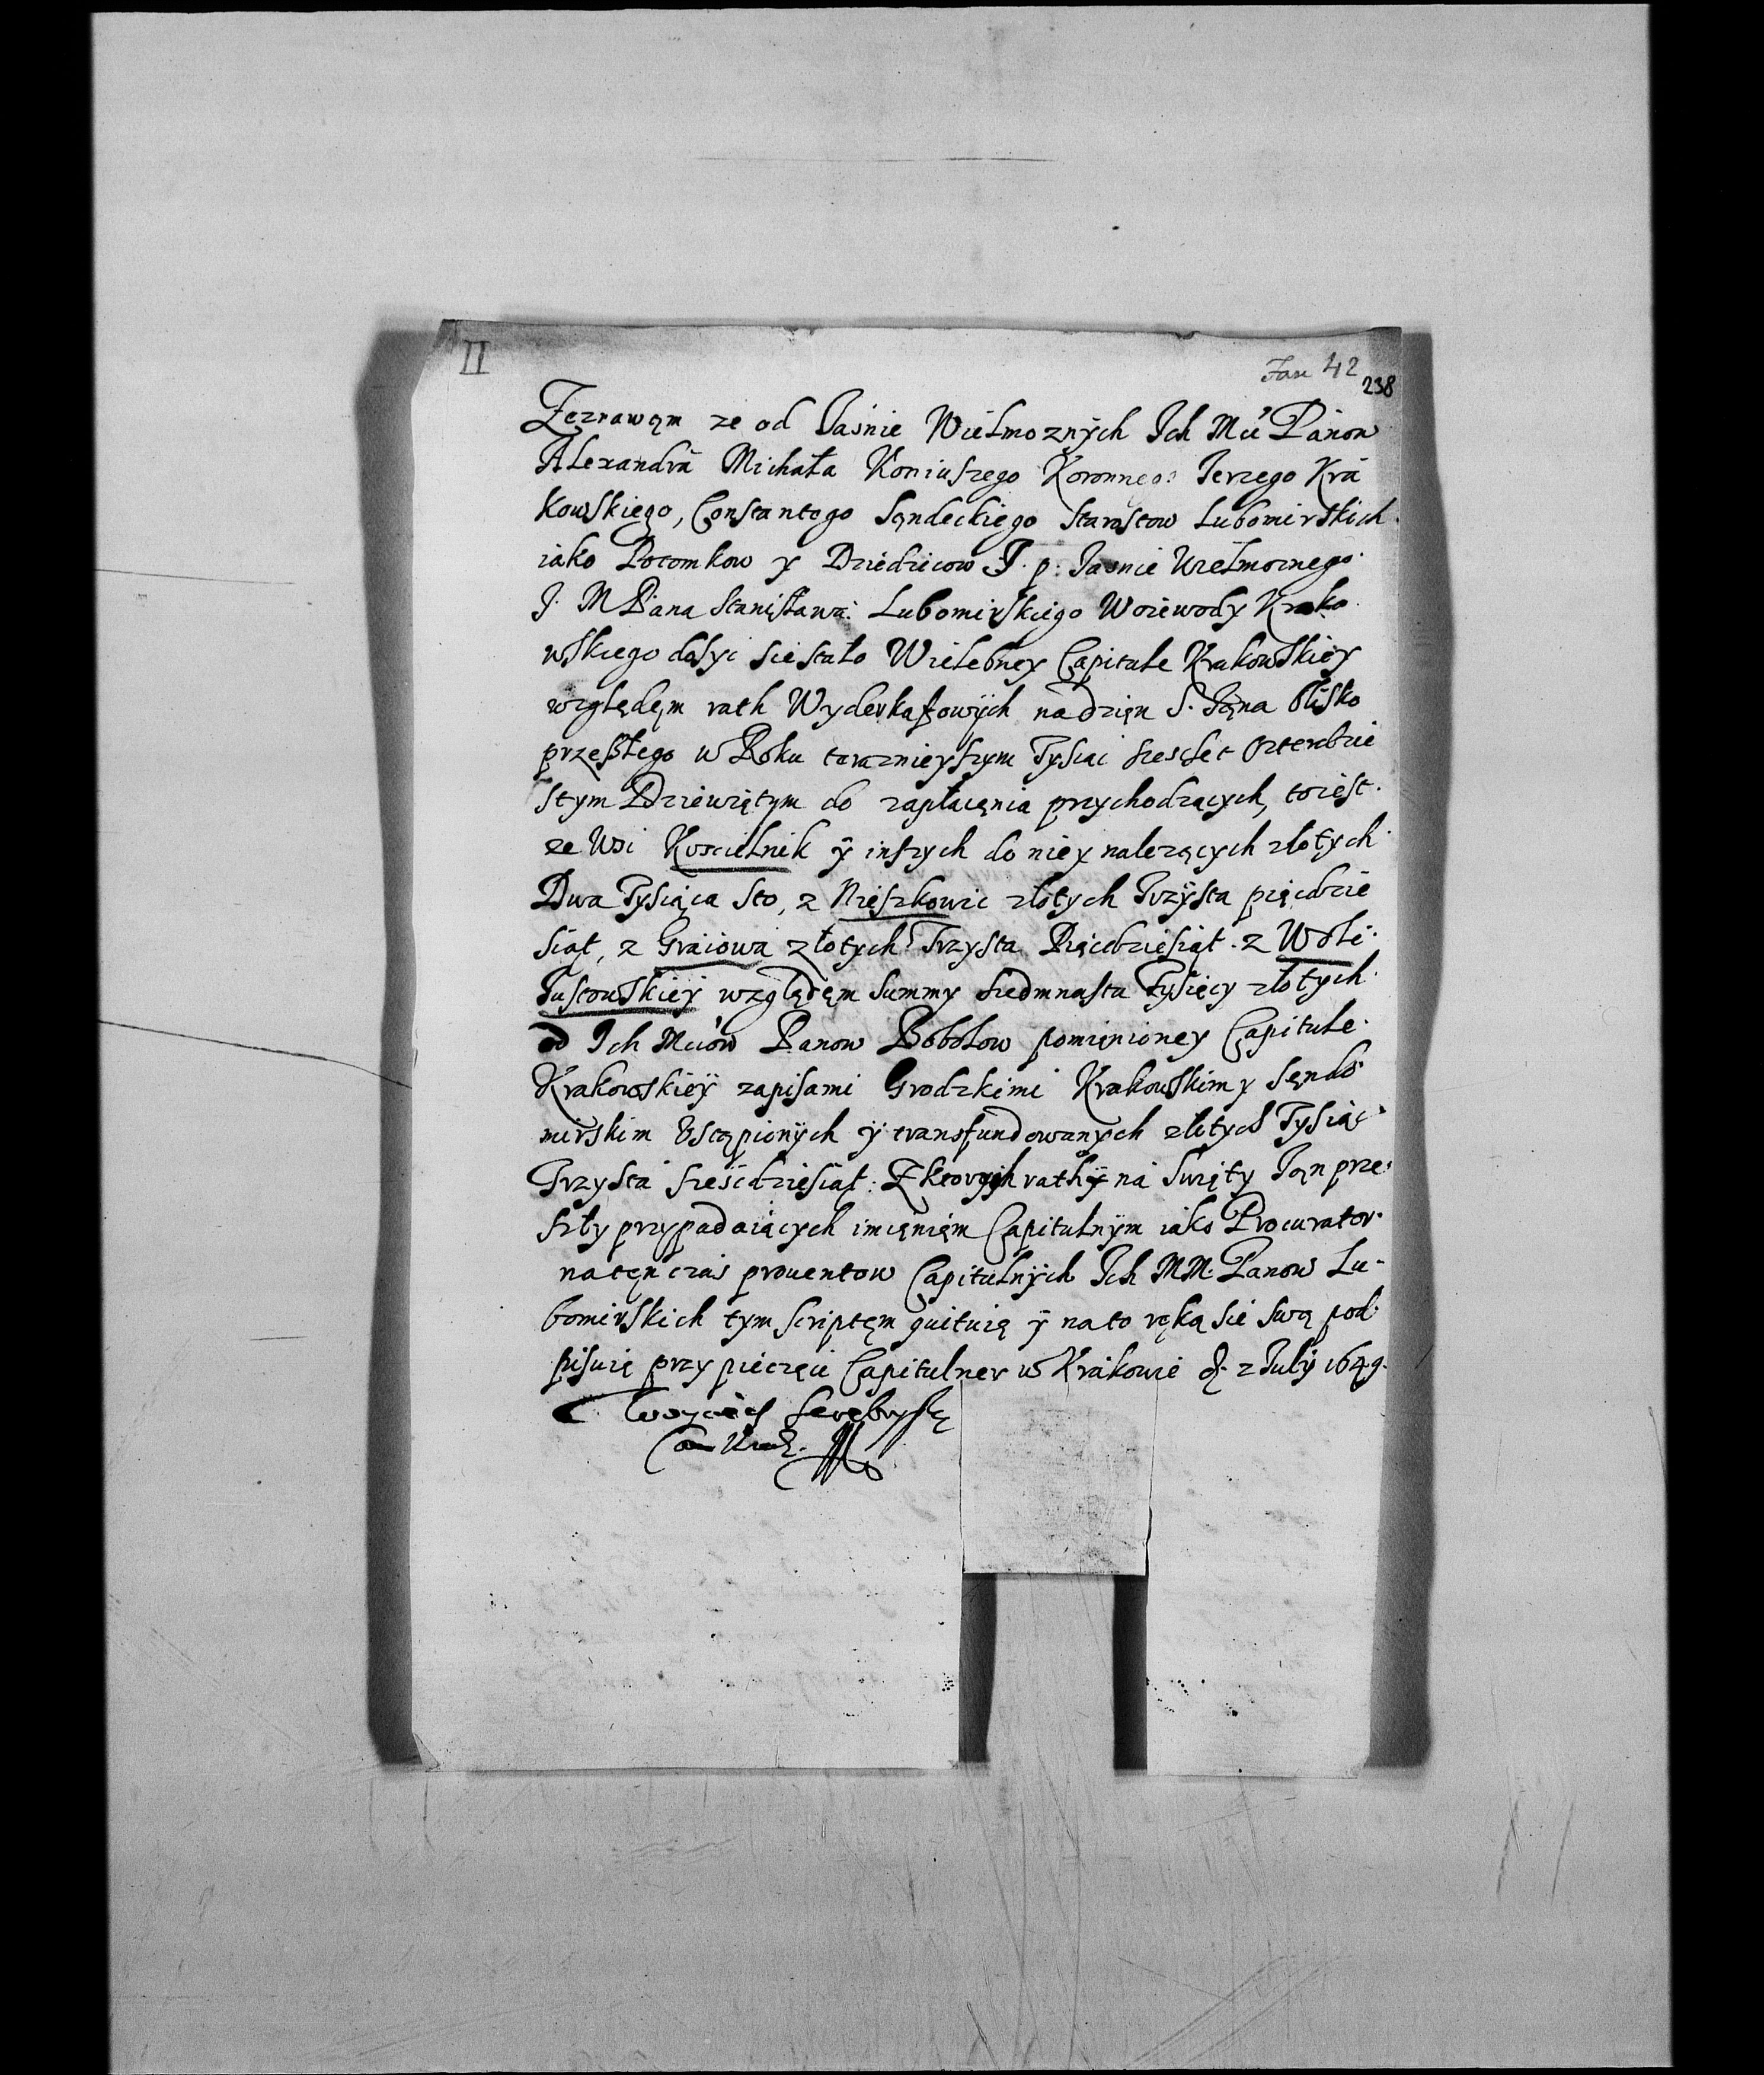 II
Fasc 42
238
Zeznawąm ze od Jaśnie Wielmoznÿch Ich Mć Pánow
Alexandrá Michała Koniuszego Koronnego Jerzego Krá
kowskiego, Constantego Sąndeckiego Starostow Lubomirskich
iako Potomkow y Dziedzicow Ś. p. Jasnie Wielmoznego
J. M Pana Stanisława Lubomirskiego Woiewody Krako
wskiego dosyc sie stało Wielebney Capitule Krakowskiey
względęm rath Wyderkafowÿch na dzięn S. Jąna blisko
przeszłego w Roku teraznieyszym Tysiąc szescset Czterdzie
stym Dziewiątym do zapłacęnia przychodzących, to iest
ze Wsi Koscielnik ÿ inszych do niey nalezących złotych
Dwa Tysiąca sto, z Nieszkowic złotych Trzÿsta pięcdzie
siąt, z Gráiowa złotych Trzysta Pięcdziesiąt. z Woli
Justowskiey względęm Summy siedmnasta Tysięcy złotych
od Ich Mciów Panow Bobolow pomięnioney Capitule
Krakowskiéÿ zapisami Grodzkimi Krakowskim y Sędo
mirskim Ustąpionÿch ÿ transfundowanych złotych Tysiąc
Trzysta szescdziesiąt: Z ktorych rathÿ ná Swięty Jąn prze
szły przypadaiących imięnięm Capitulnÿm iako Procurator
natęn czas prouentow Capitulnÿch Ich MM. Panow Lu-
bomirskich tym scriptęm quituię ÿ na to ręką sie swą pod
pisuię przy pieczęci Capitulney w Krákowie d. 2 Julÿ 1649.
Woyciech Serebryski
Can Krak.